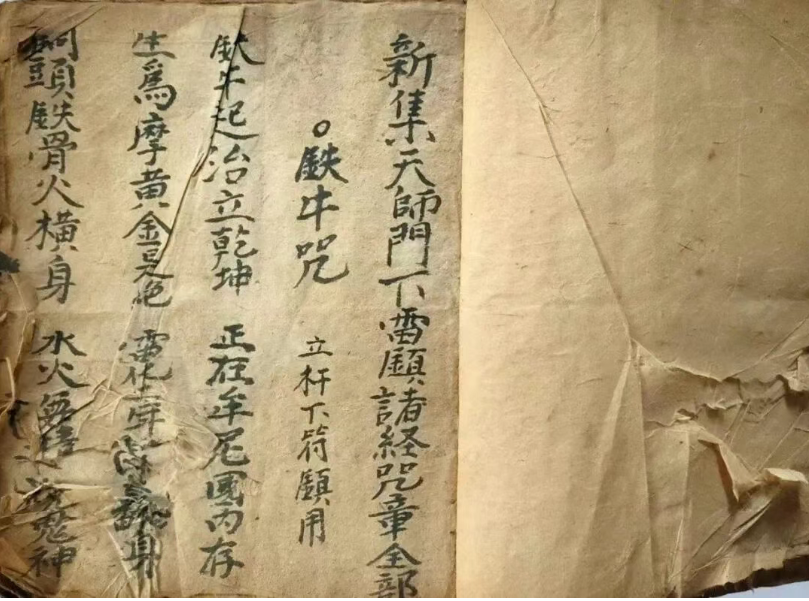 新集天師門下雷願諸経咒章全部
○鉄牛咒 立杆下符願用
鉄牛起治立乾坤 正在牟尼國内存
生為摩黄金是 身
頭鉄骨火橫身 水火 鬼神